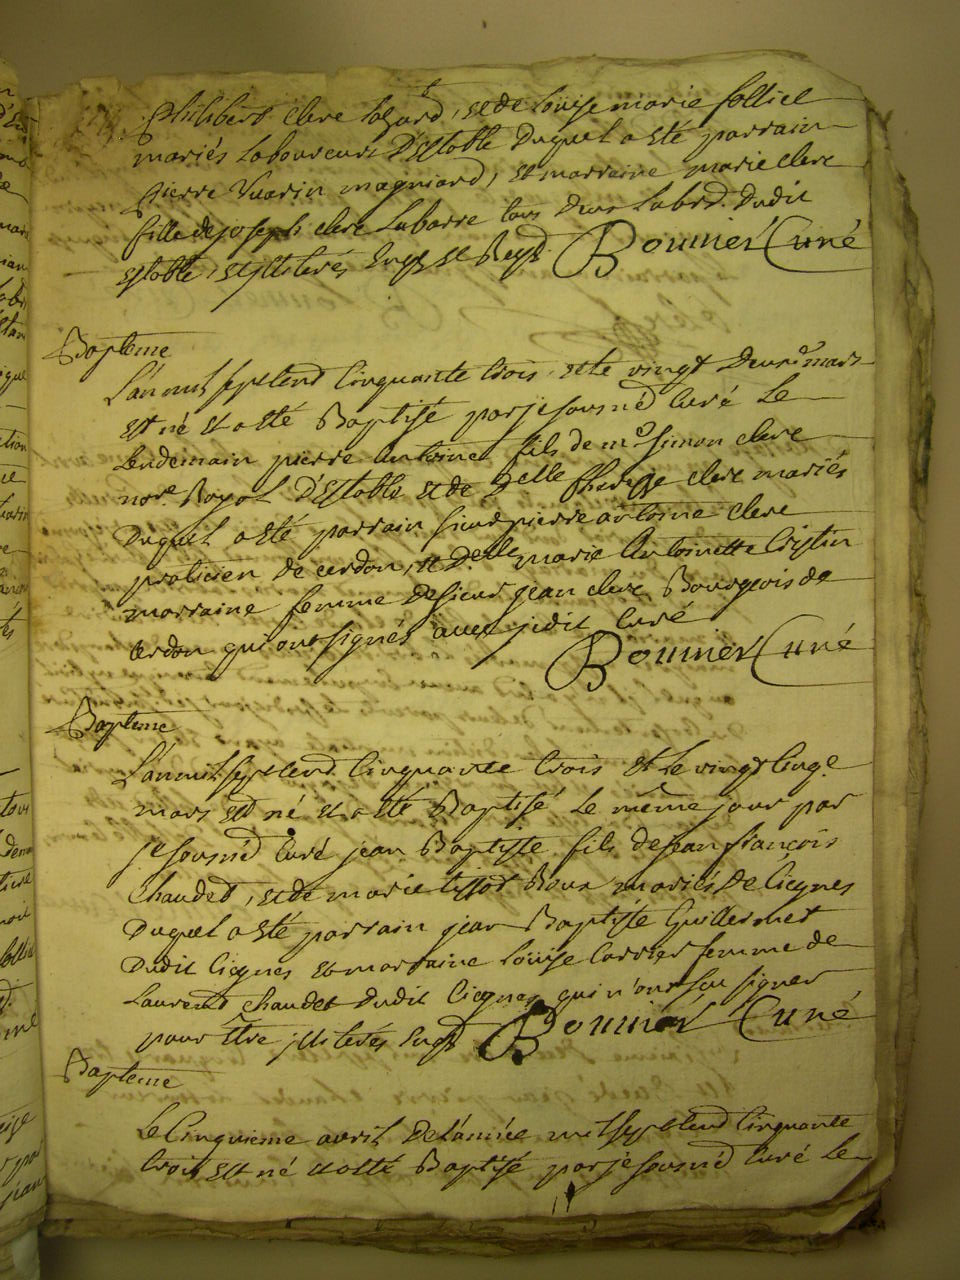 Philibert Clerc et de Louise marie folliet
mariés Laboureurs D'Estable Duquel a eté parrain
pierre Vuarin et marraine marie Clerc
fille de joseph Clerc Labarre tous Deux Labrs. Dudit
Estable, et illiterés Reqs. Bouvier Curé
Bapteme
L'an mil sept cend Cinquante trois et le vingt Deux mars
est né et a eté Baptisé par je sousnéd Curé Le
Lendemain pierre Antoine fils de mre Simon Clerc
nore. Royal D'Estable et de Delle Clerc mariés
Duquel a eté parrain sieur pierre antoine Clerc
praticien de cerdon, et Delle marie Antoinette Cristin
marraine femme de sieur jean Clerc Bourgeois de
Cerdon qui ont signés avec jedit Curé
Bouvier Curé
Bapteme
L'an mil sept cend Cinquante trois et Le vingt
mars est né et a eté Baptisé Le même jour par
je sousnéd Curé jean Baptiste fils de jean françois
Chaudet, et de marie Roux mariés de Cicgnes
Duquel a eté parrain jean Baptiste Guillermet
Dudit Cicgnes et marraine Louise Carrier femme de
Laurend Chaudet Dudit Cicgnes qui n'ont sçu signer
pour être illiterés Bouvier Curé
Bapteme
Le Cinquieme avril De L'année mil sept cend Cinquante
trois est né et a eté Baptisé par je sousnéd Curé Le